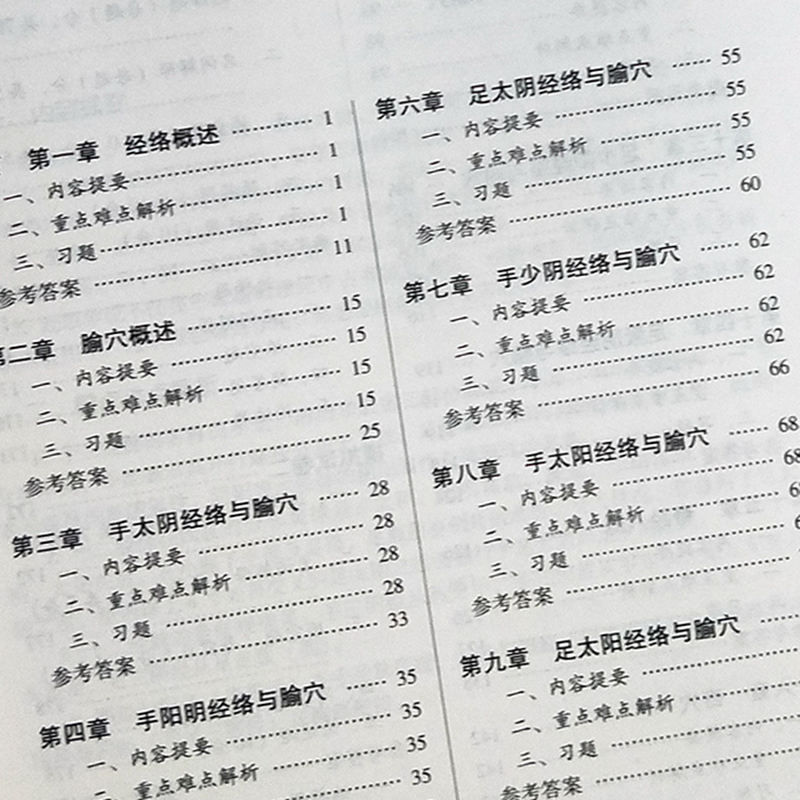 第一章 经络概述 …… 1
一、内容提要 …… 1
二、重点难点解析 …… 1
三、习题 …… 1
参考答案 …… 11
第二章 腧穴概述 …… 15
一、内容提要 …… 15
二、重点难点解析 …… 15
三、习题 …… 15
参考答案 …… 25
第三章 手太阴经络与腧穴 …… 28
一、内容提要 …… 28
二、重点难点解析 …… 28
三、习题 …… 28
参考答案 …… 33
第四章 手阳明经络与腧穴 …… 35
一、内容提要 …… 35
二、重点难点解析 …… 35
35
第六章 足太阴经络与腧穴 …… 55
一、内容提要 …… 55
二、重点难点解析 …… 55
三、习题 …… 55
参考答案 …… 60
第七章 手少阴经络与腧穴 …… 62
一、内容提要 …… 62
二、重点难点解析 …… 62
三、习题 …… 62
参考答案 …… 66
第八章 手太阳经络与腧穴 …… 68
一、内容提要 …… 68
二、重点难点解析 ……
三、习题 ……
参考答案 ……
第九章 足太阳经络与腧穴 ……
一、内容提要 ……
二、重点难点解析 ……
三、习题 ……
参考答案 ……